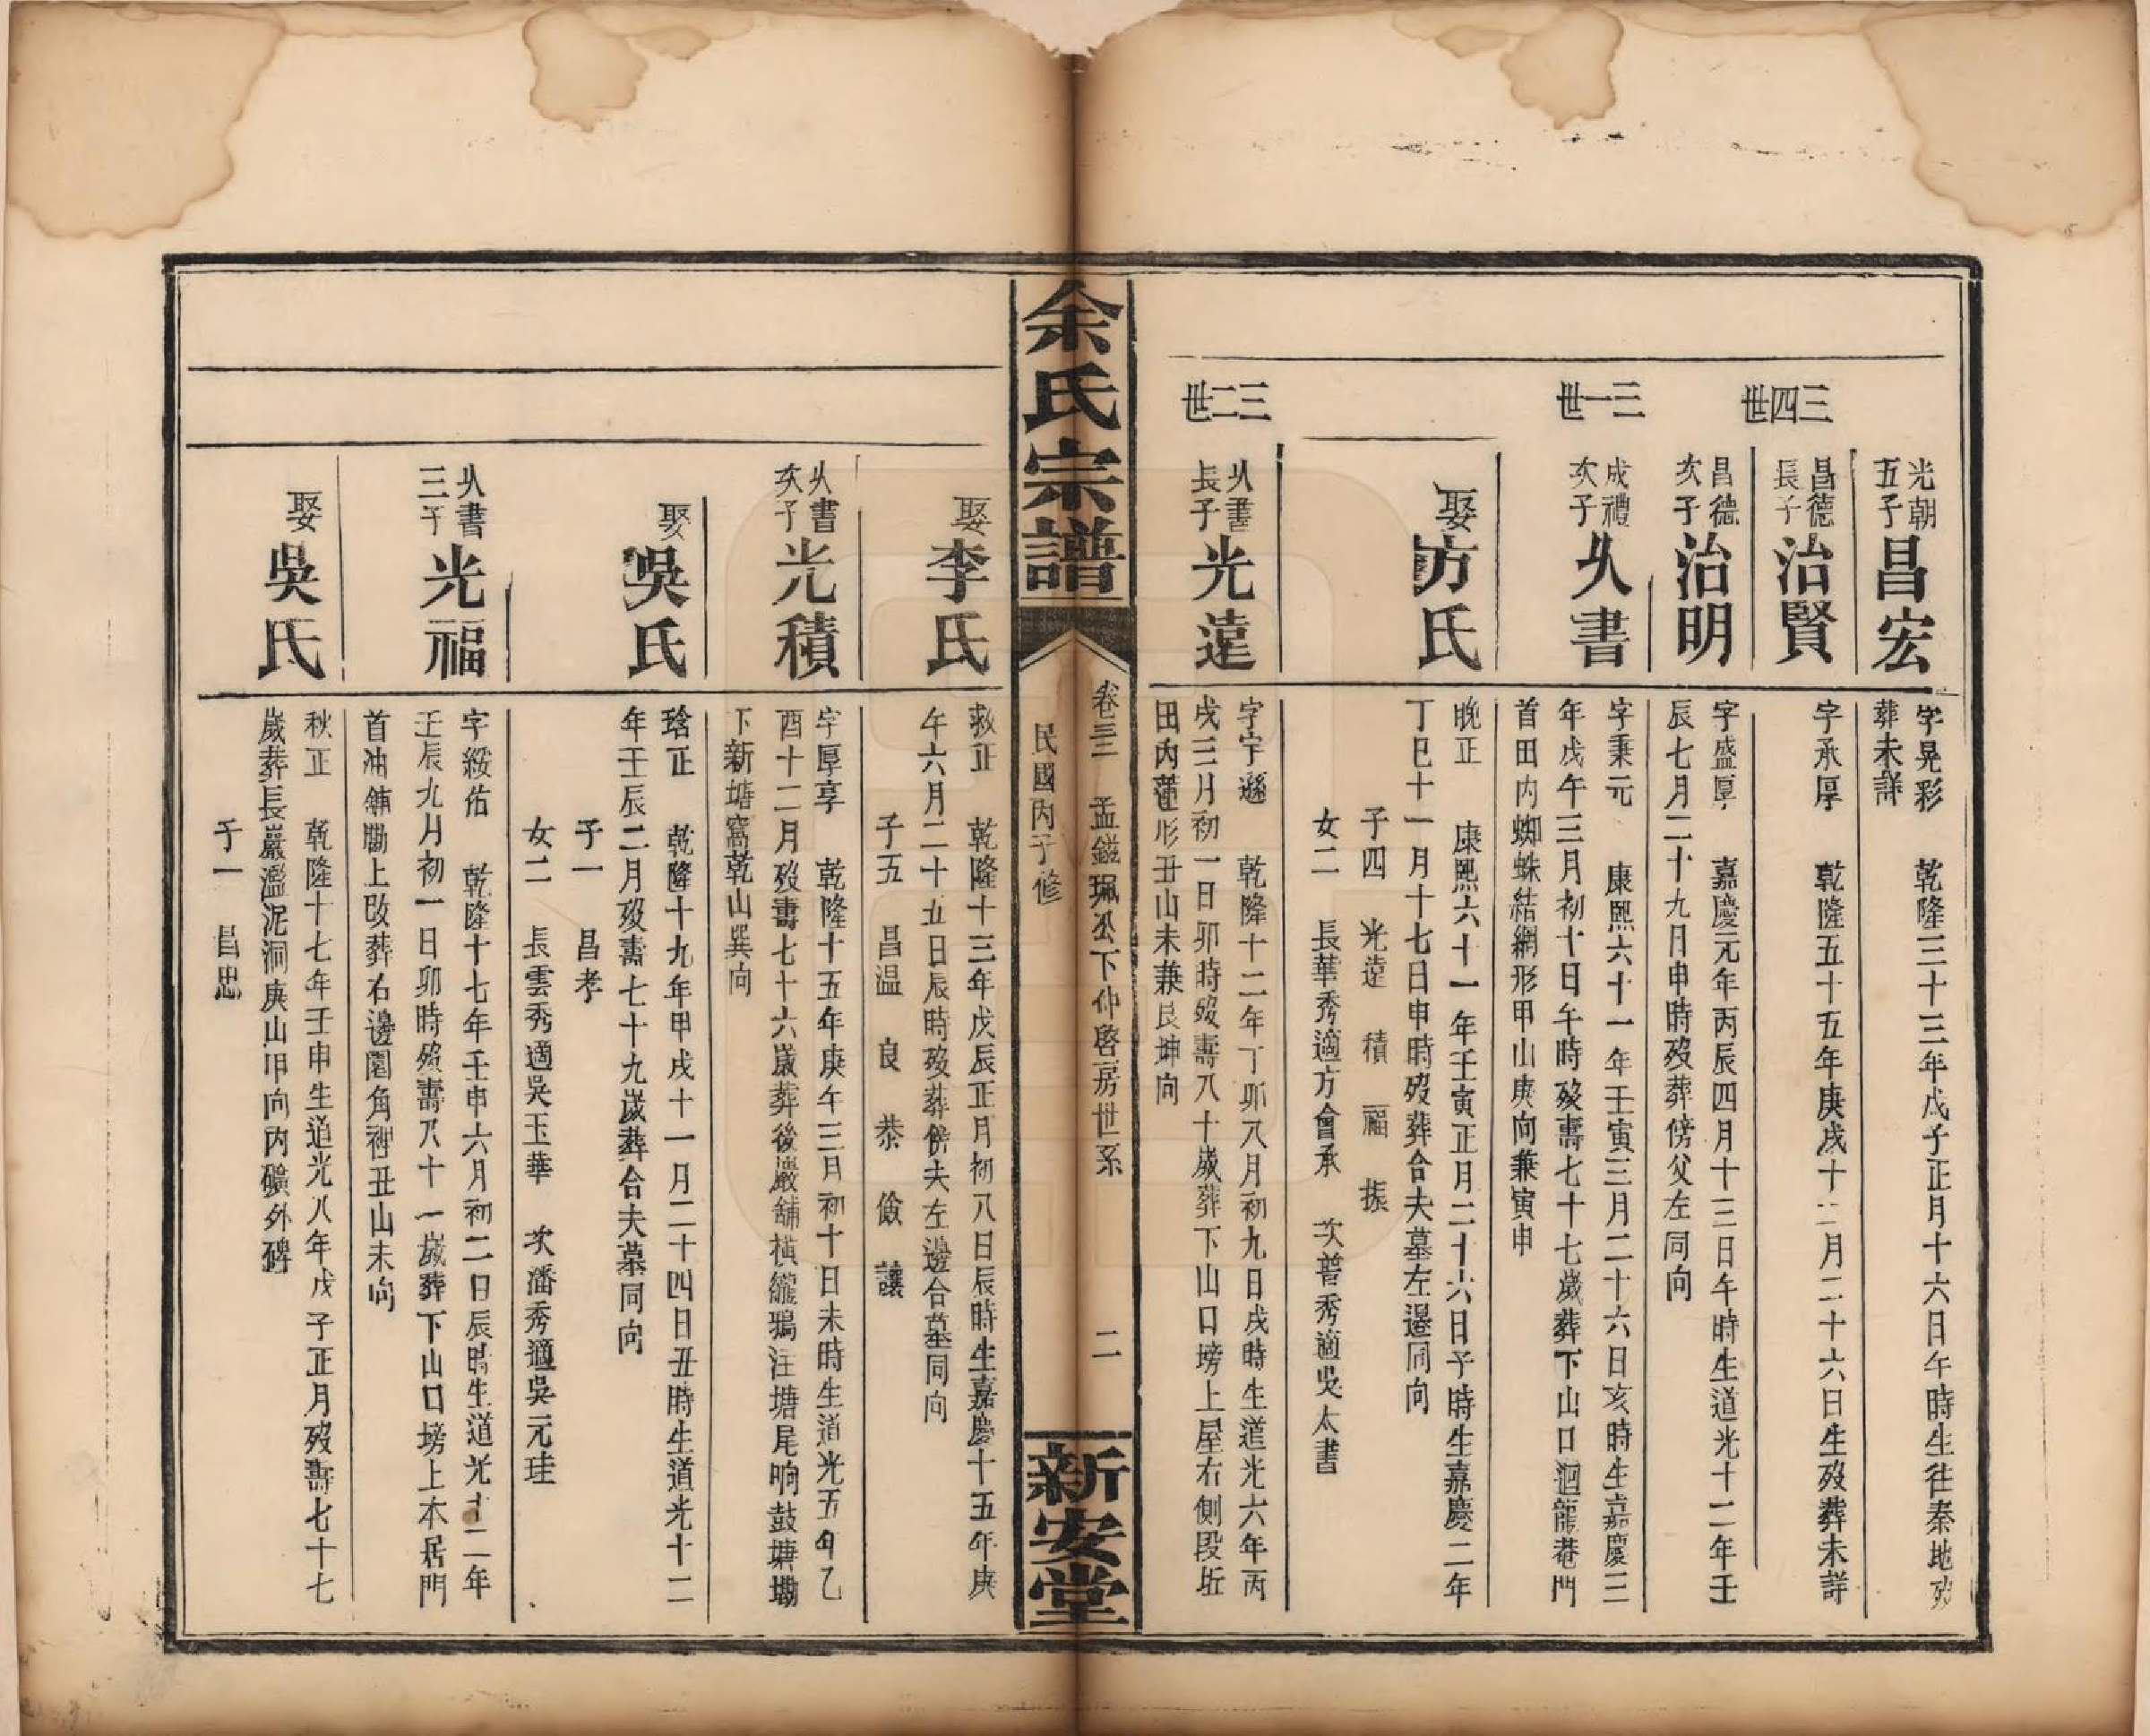 光朝
五子
昌宏
字晃彩 乾隆三十三年戊子正月十六日午時生往秦地歿
葬未詳
三四世
昌德
長子
治賢
字承厚 乾隆五十五年庚戌十二月二十六日生歿葬未詳
昌德
次子
治明
字盛厚 嘉慶元年丙辰四月十三日午時生道光十二年壬
辰七月二十九日申時歿葬傍父左同向
三一世
成禮
次子
乆書
字秉元 康熙六十一年壬寅三月二十六日亥時生嘉慶三
年戊午三月初十日午時歿壽七十七歲葬下山口迴龍菴門
首田内蜘蛛結網形甲山庚向兼寅申
娶
方氏
晚正 康熙六十一年壬寅正月二十六日子時生嘉慶二年
丁巳十一月十七日申時歿葬合夫墓左邊同向
子四 光遠 積 福 振
女二 長華秀適方會承 次普秀適吳太書
三二世
乆書
長子
光遠
字宇遜 乾隆十二年丁卯八月初九日戌時生道光六年丙
戌三月初一日卯時歿壽八十歲葬下山口塝上屋右側段坵
田内蓮形丑山未兼艮坤向
余氏宗譜
卷三 孟鎡珮公下仲啓房世系 二
民國丙子修
新安堂
娶
李氏
救正 乾隆十三年戊辰正月初八日辰時生嘉慶十五年庚
午六月二十五日辰時歿葬傍夫左邊合墓同向
子五 昌温 良 恭 儉 讓
乆書
次子
光積
字厚享 乾隆十五年庚午三月初十日未時生道光五年乙
酉十二月歿壽七十六歲葬後巖舖橫籠鴉汪塘尾响鼓塘塝
下新塘窩乾山巽向
娶
吳氏
琀正 乾隆十九年甲戌十一月二十四日丑時生道光十二
年壬辰二月歿壽七十九歲葬合夫墓同向
子一 昌孝
女二 長雲秀適吳玉華 次潘秀適吳元珪
乆書
三子
光福
字綏佑 乾隆十七年壬申六月初二日辰時生道光十二年
壬辰九月初一日卯時歿壽八十一歲葬下山口塝上本居門
首油舖塝上改葬右邊園角裡丑山未向
娶
吳氏
秋正 乾隆十七年壬申生道光八年戊子正月歿壽七十七
歲葬長巖濫泥洞庚山甲向内礦外碑
子一 昌忠